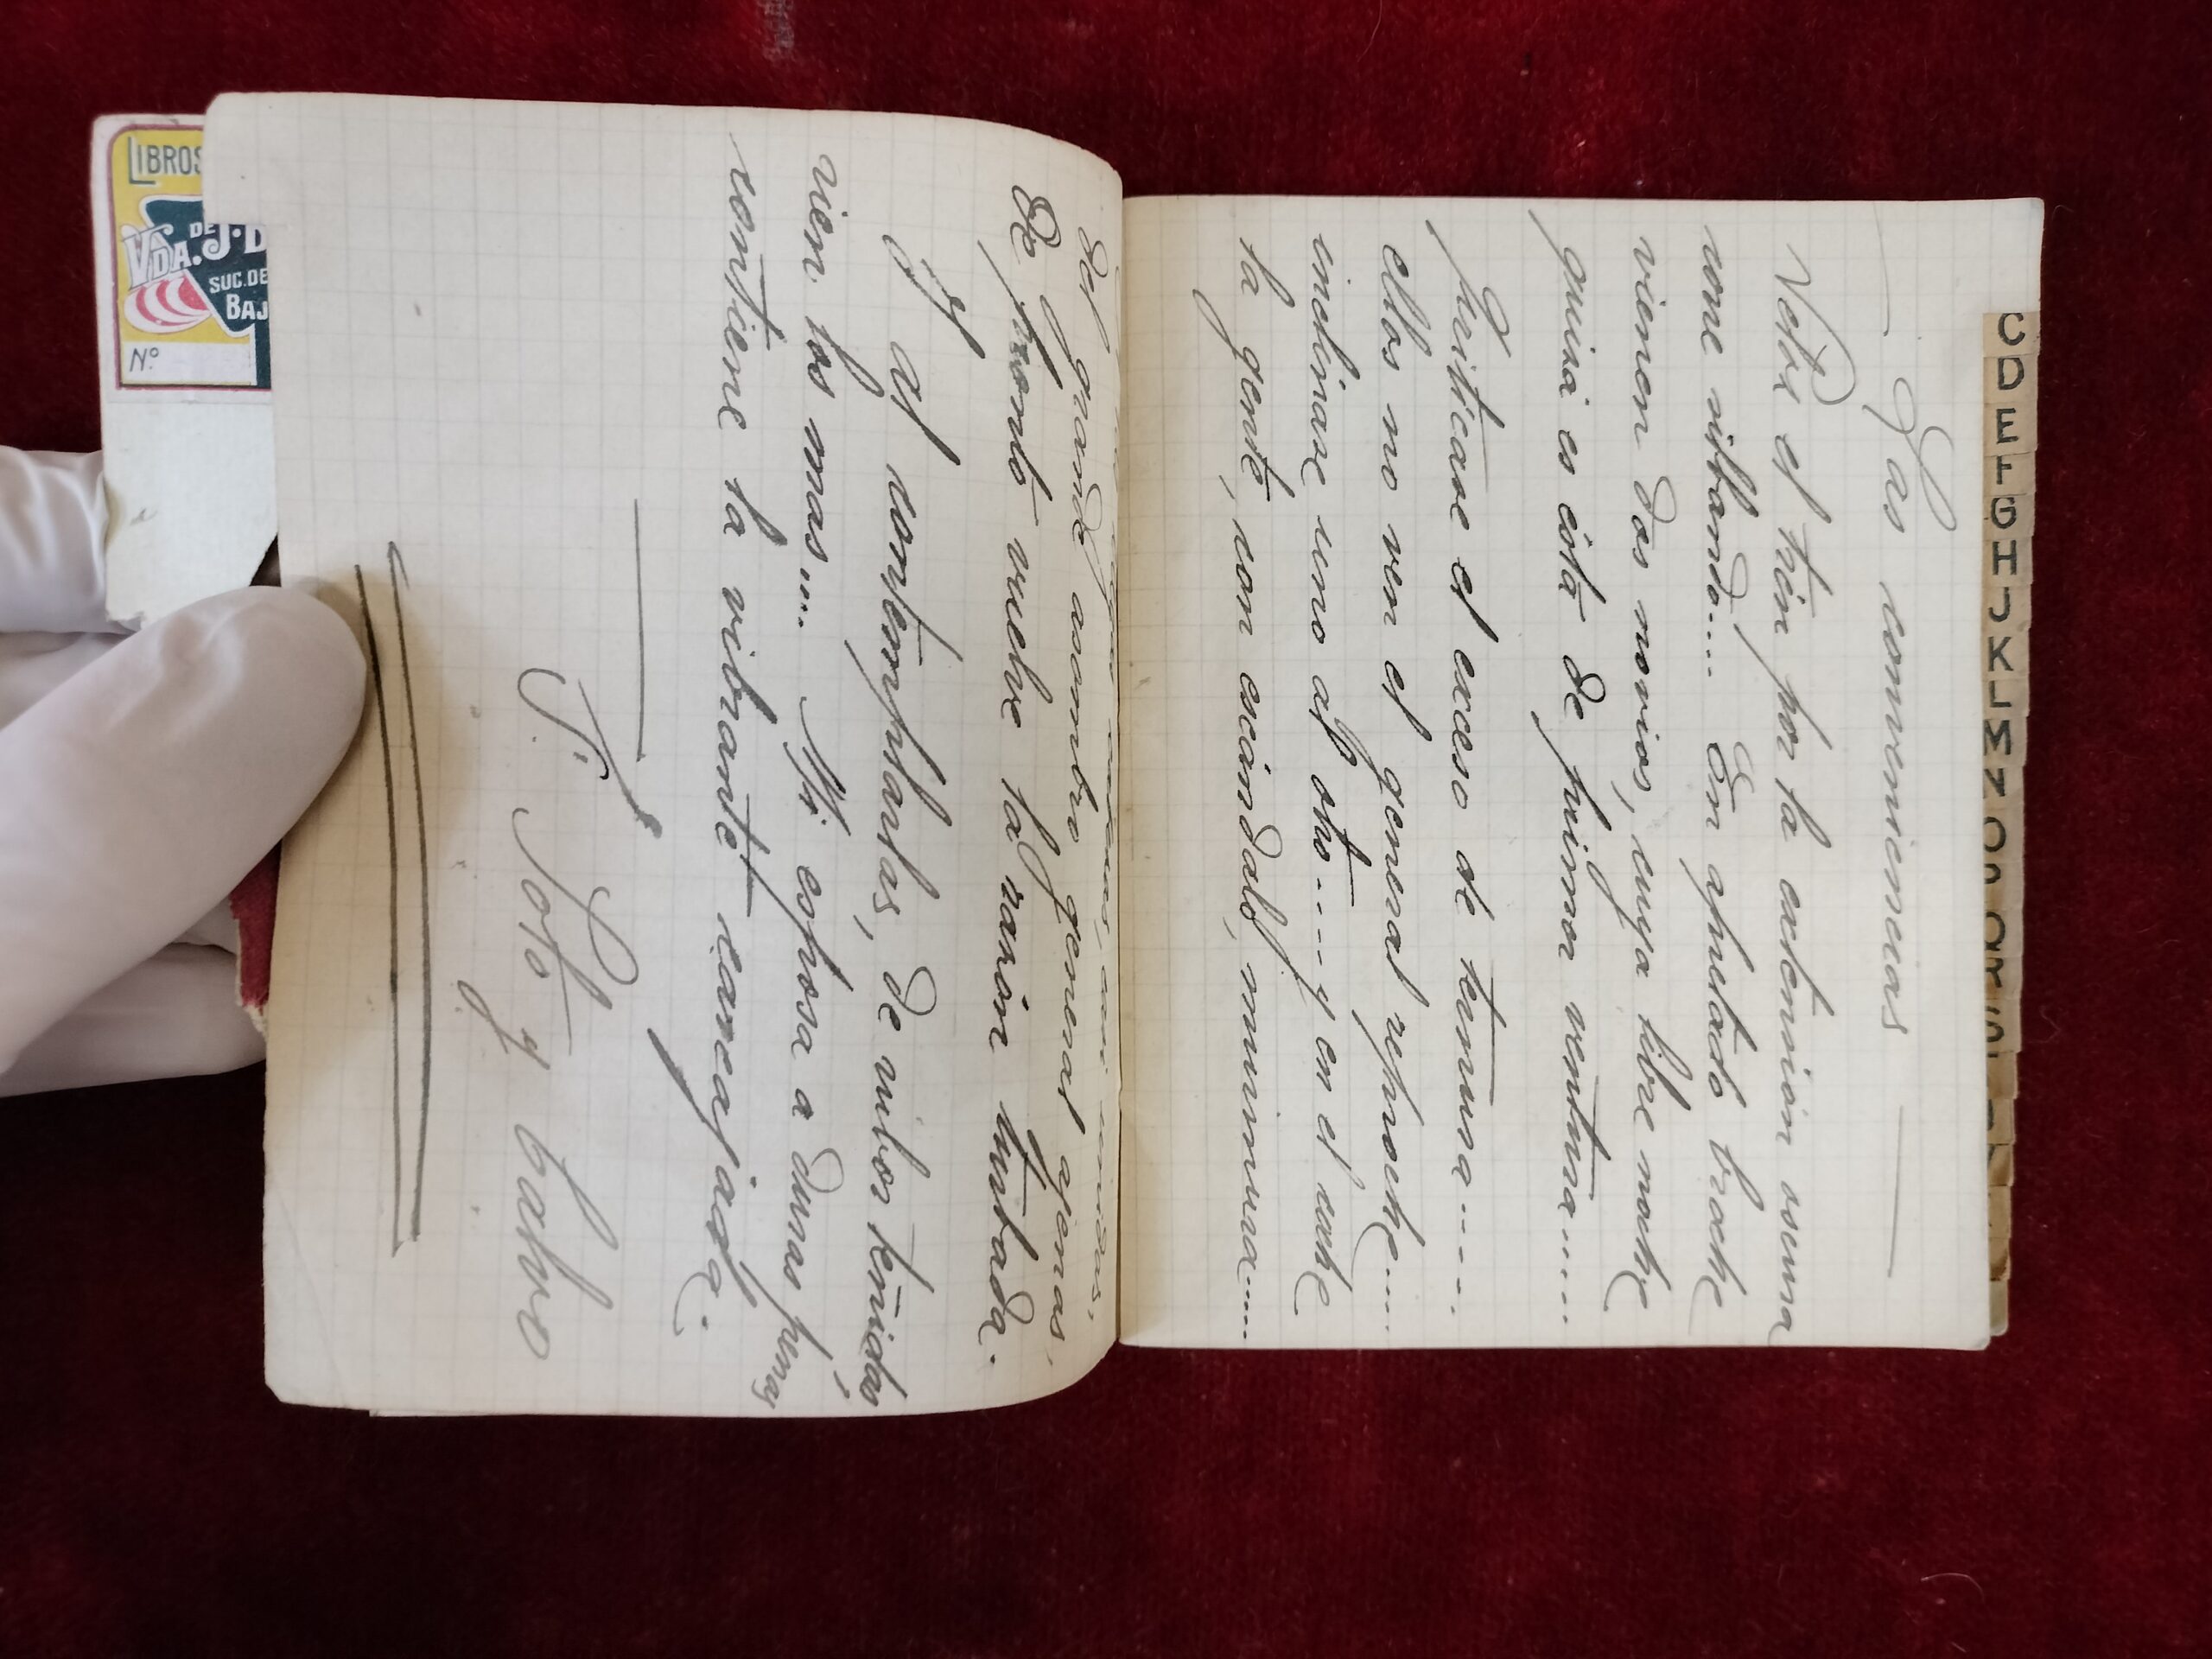 Las conveniencias
Veloz el trén por la extensión oscura
corre silbando.... En apretado broche
vienen dos novios, cuya libre noche
quisá es ésta de primer ventura.....
Critícase el exceso de ternura....
ellos no ven el general reproche....
inclínase uno al otro.... y en el coche
la gente, con escándalo, murmura.....
unidas,
del grande asombro general agenas,
De pronto vuelve la razón turbada.
Y al contemplarlas, de rubor teñidas
rien las mas.... Mi esposa a duras penas
contiene la vibrante carcajada.
F. Soto y Calvo
LIBROS
VDA. DE J. D
SUC. DE
BAJ
Nº
C
D
E
F
G
H
J
K
L
M
N
O
Q
R
S